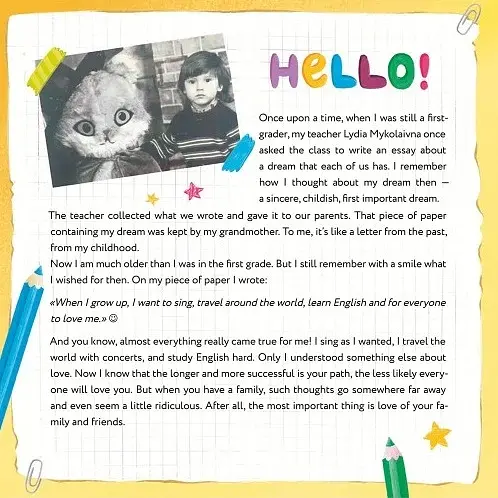 HELLO!
Once upon a time, when I was still a first-
grader, my teacher Lydia Mykolaivna once
asked the class to write an essay about
a dream that each of us has. I remember
how I thought about my dream then —
a sincere, childish, first important dream.
The teacher collected what we wrote and gave it to our parents. That piece of paper
containing my dream was kept by my grandmother. To me, it's like a letter from the past,
from my childhood.
Now I am much older than I was in the first grade. But I still remember with a smile what
I wished for then. On my piece of paper I wrote:
«When I grow up, I want to sing, travel around the world, learn English and for everyone
to love me.» ☺
And you know, almost everything really came true for me! I sing as I wanted, I travel the
world with concerts, and study English hard. Only I understood something else about
love. Now I know that the longer and more successful is your path, the less likely every-
one will love you. But when you have a family, such thoughts go somewhere far away
and even seem a little ridiculous. After all, the most important thing is love of your fa-
mily and friends.